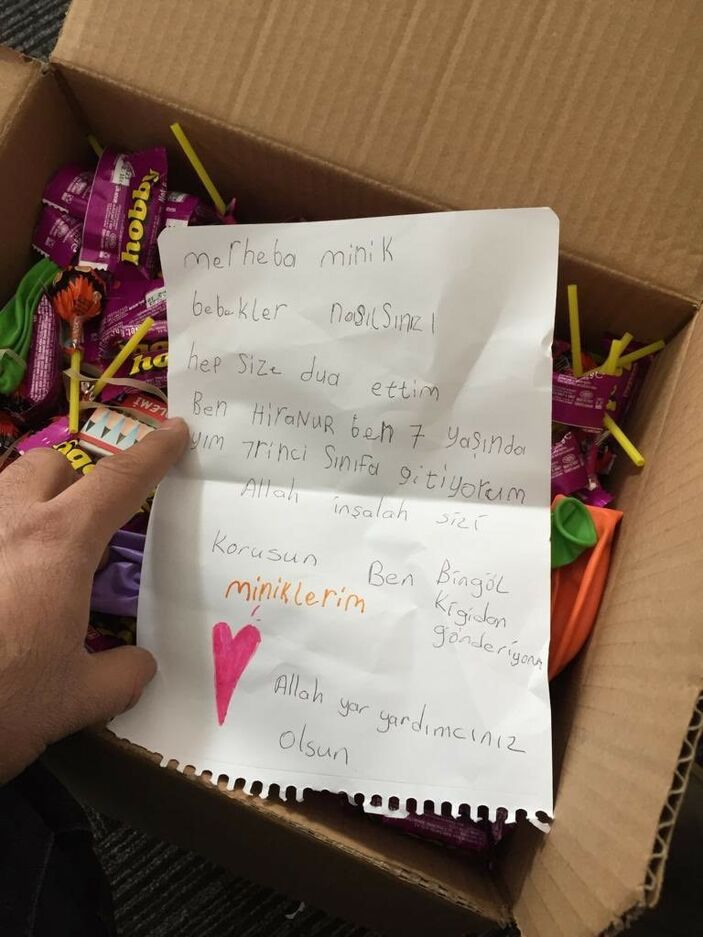 hobby
merheba minik
bebekler nasılsınız
hep size dua ettim
Ben HiraNUR ben 7 yaşında
yım 7rinci Sınıfa gitiyorum
Allah inşalah sizi
Korusun
miniklerim
Ben Bingöl
Kigidan
gönderiyom
Allah yar yardımcınız
Olsun